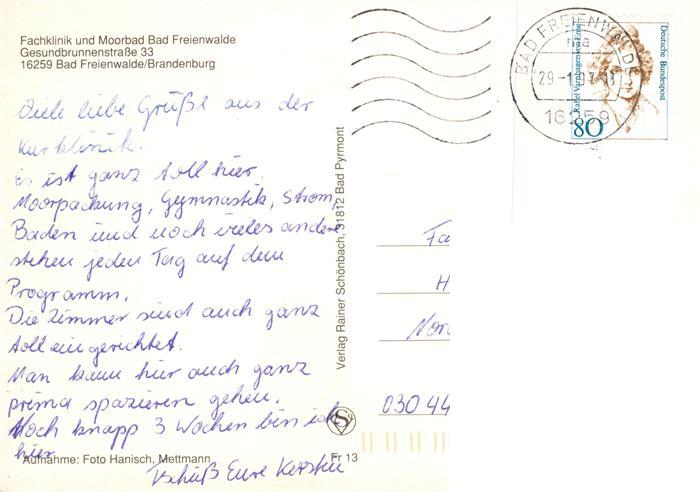 Fachklinik und Moorbad Bad Freienwalde
Gesundbrunnenstraße 33
16259 Bad Freienwalde/Brandenburg
Viele liebe Grüße aus der
Kurklinik.
Es ist ganz toll hier.
Moorpackung, Gymnastik, Strom,
Baden und noch vieles andere
stehen jeden Tag auf dem
Programm.
Die Zimmer sind auch ganz
toll eingerichtet.
Man kann hier auch ganz
prima spazieren gehen.
Noch knapp 3 Wochen bin ich
hier.
Tschüß Eure Kerstin
Aufnahme: Foto Hanisch, Mettmann
Fr 13
Verlag Rainer Schönbach, 31812 Bad Pyrmont
BAD FREIENWALDE
16259
Deutsche Bundespost
Rahel Varnhagen von Ense
80
Fa
H
Nor
030 44